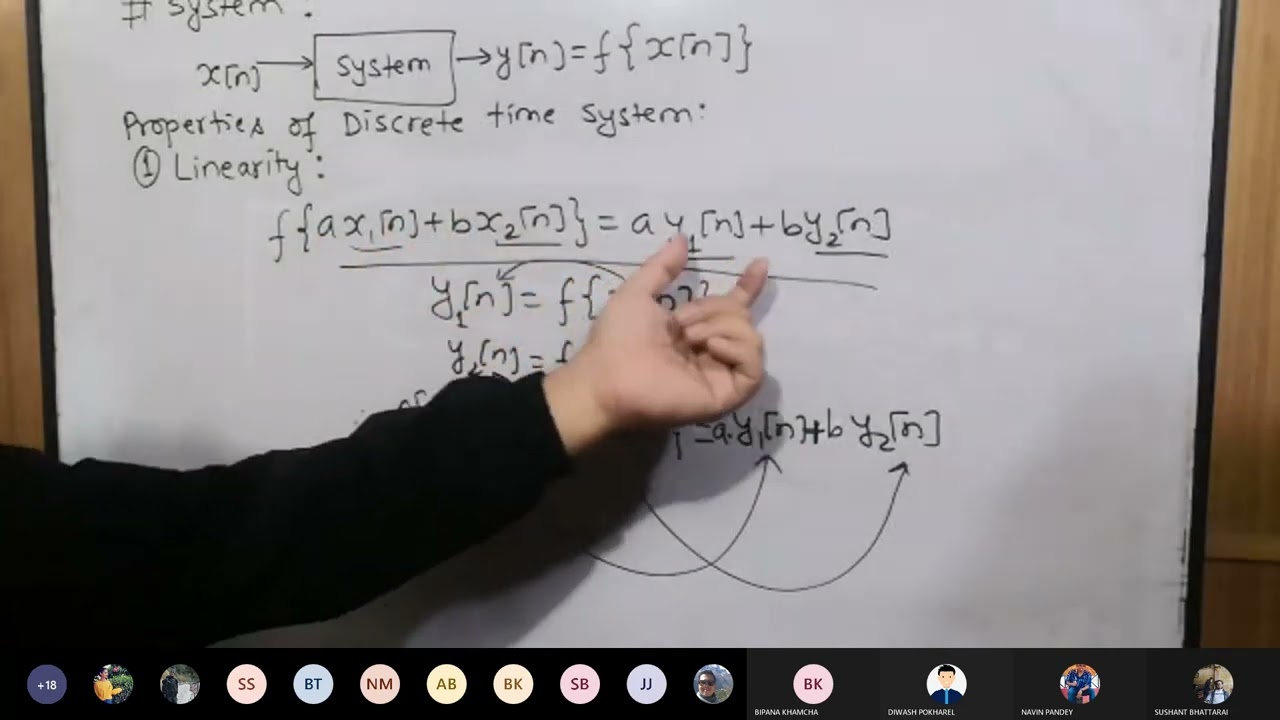 # System :
x[n] → System → y[n] = f{x[n]}
Properties of Discrete time System:
① Linearity:
f{ax₁[n]+bx₂[n]} = ay₁[n]+by₂[n]
y₁[n] = f{
y₂[n] = f
= a.y₁[n]+b y₂[n]
+18 SS BT NM AB BK SB JJ BK
BIPANA KHAMCHA DIWASH POKHAREL NAVIN PANDEY SUSHANT BHATTARAI